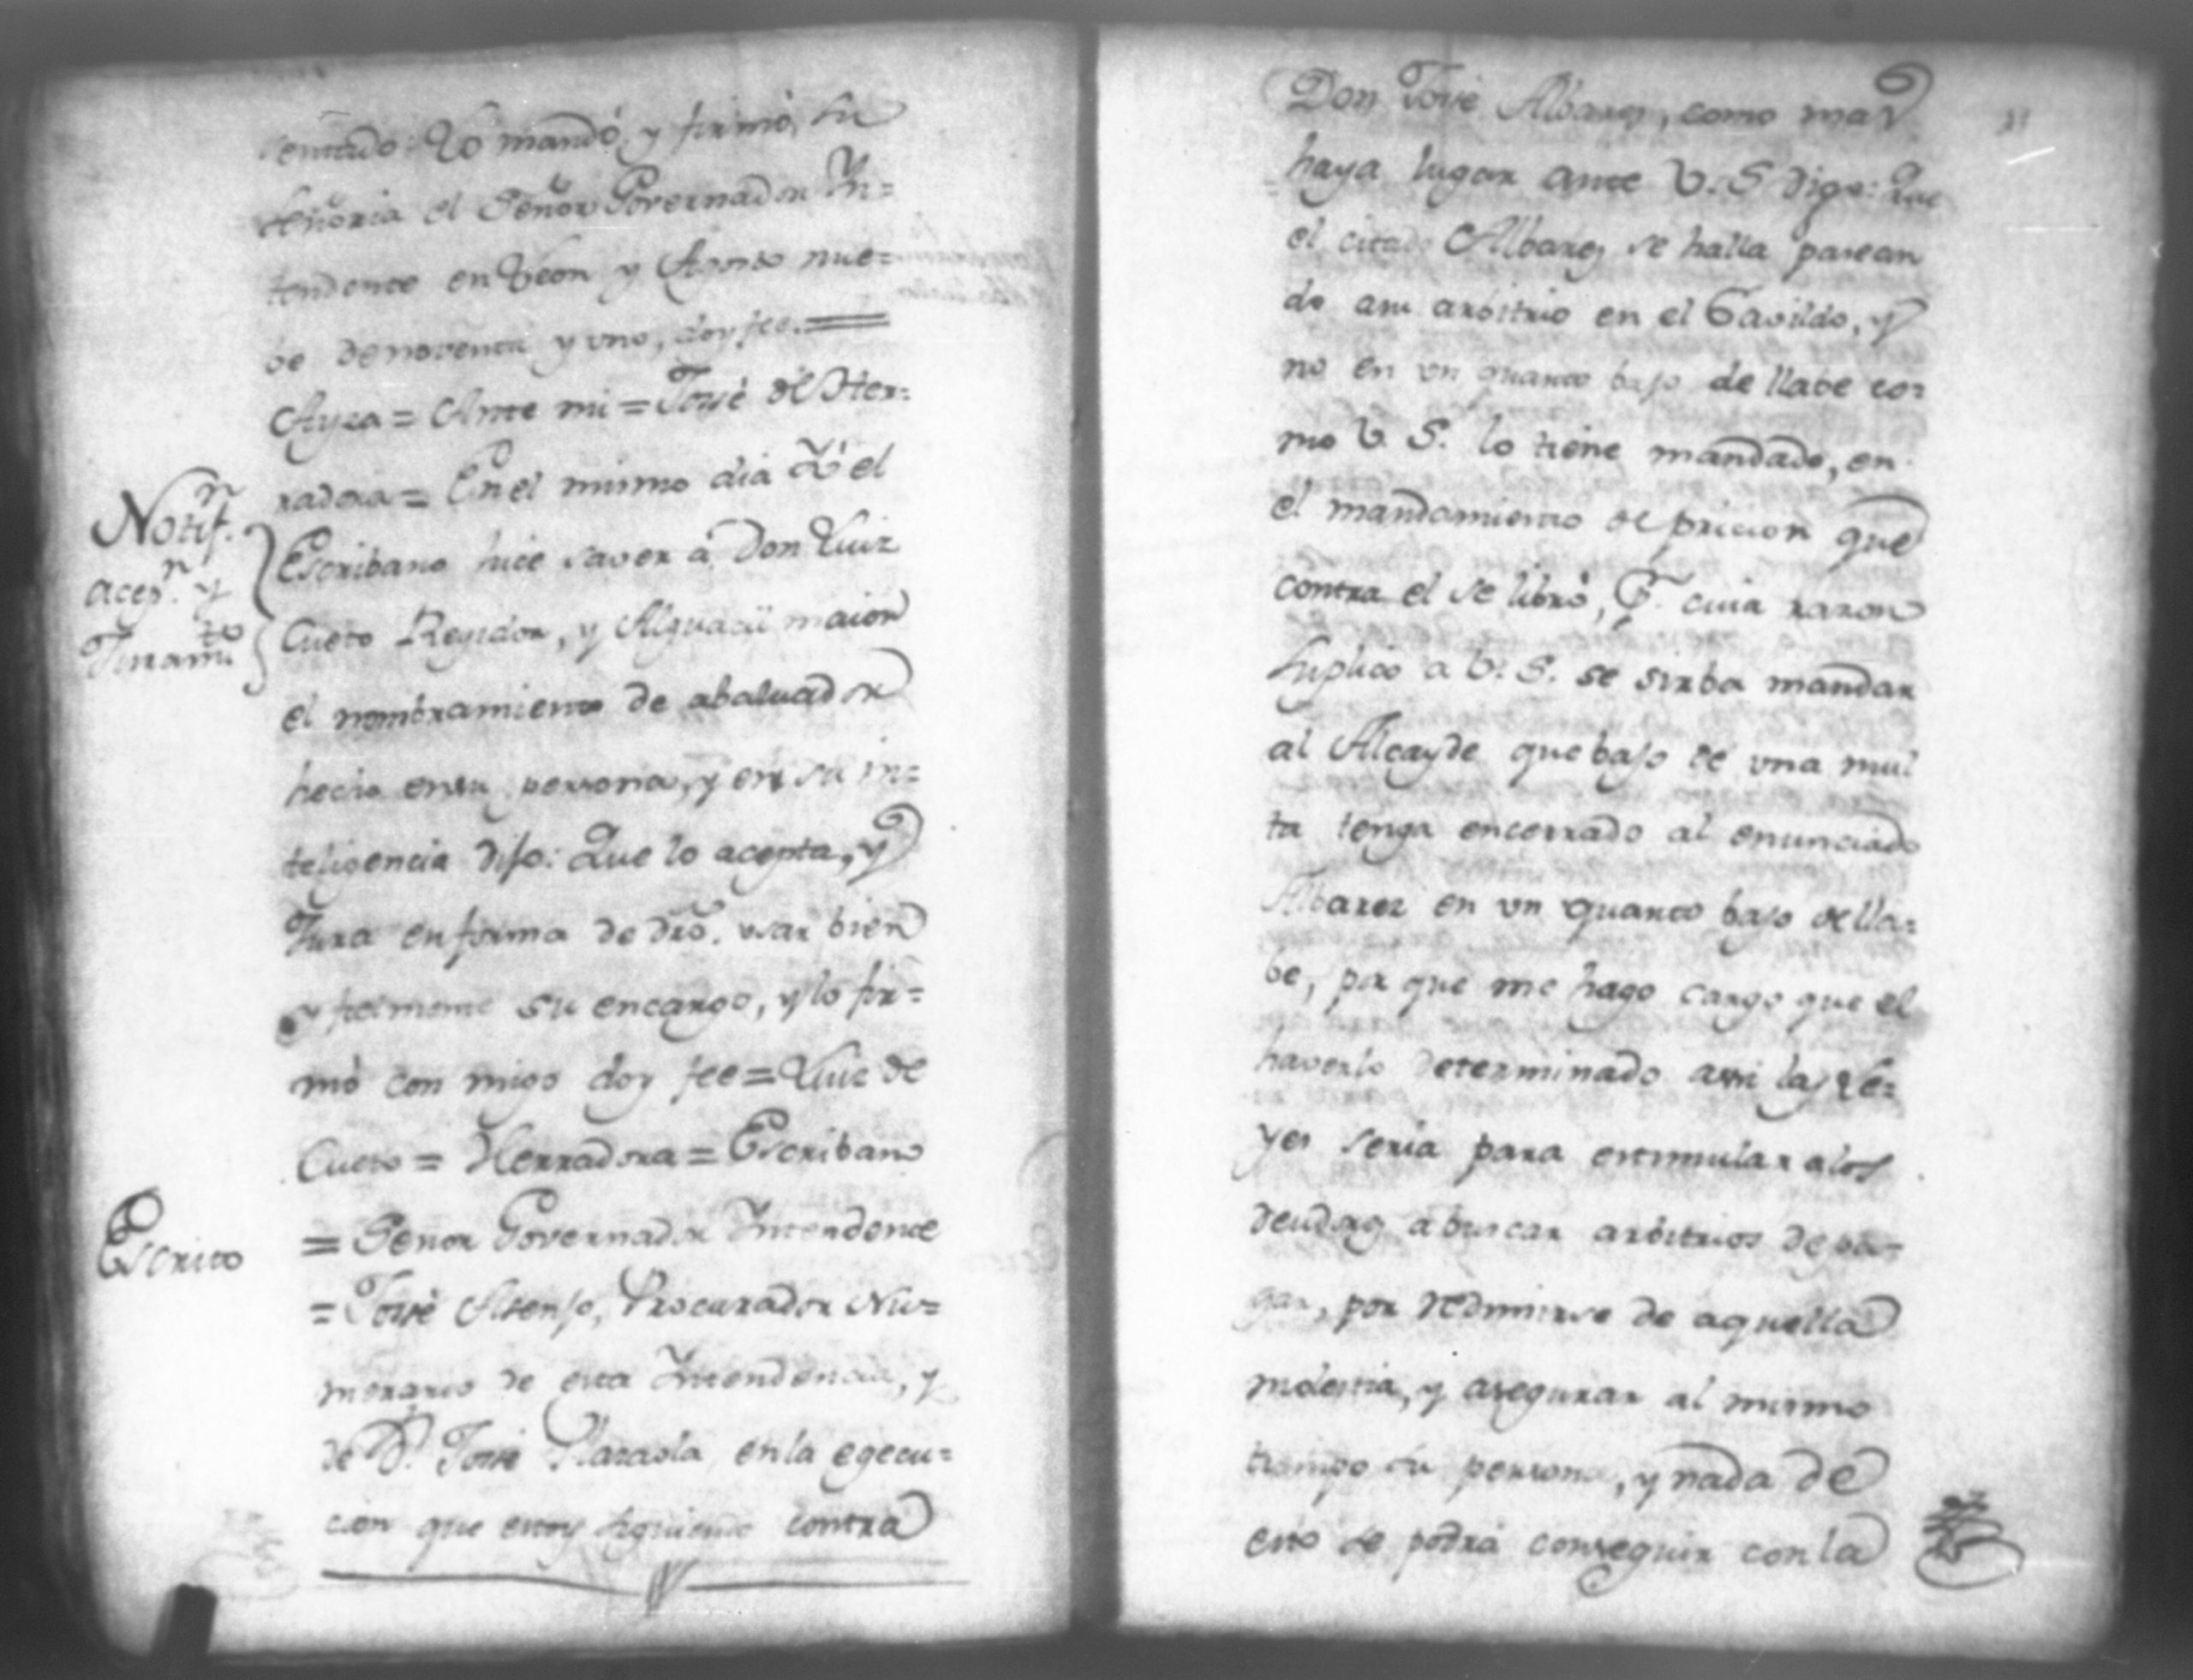 sentado: Lo mandó, y firmó, su
Señoria el Señor Governador Yn=
tendente en Leon y Agosto nue=
be de noventa y uno, doy fee. =
Aysa = Ante mi = José de Her=
radora = En el mismo dia Yo el
Notif.n
acep.n y
Juram.to
Escribano hice saver á Don Luiz
Cueto Regidor, y Alguacil maior
el nombramiento de abaluador
hecho en su persona, y en su in=
teligencia dijo: Que lo acepta, y
Jura en forma de dro. usar bien
y fielmente su encargo, y lo fir=
mó con migo doy fee = Luiz de
Cueto = Herradora = Escribano
Escrito
= Señor Governador Yntendente
= José Asenjo, Procurador Nu=
merario de esta Yntendencia, y
de D.n José en la egecu=
cion que estoy siguiendo contra
Don José Albarez, como mas
haya lugar ante V. S digo: Que
el citado Albarez se halla pasean
do asu arbitrio en el Cavildo, y
no en un quarto bajo de llabe co=
mo V. S. lo tiene mandado, en
el mandamiento de pricion que
contra el se libró, P. cuia razon
Suplico a V. S. se sirba mandar
al Alcayde que bajo de una mul
ta tenga encerrado al enunciado
Albarez en un quarto bajo de lla=
be, por que me hago cargo que el
haverlo determinado assi las Le=
yes seria para estimular alos
deudores a buscar arbitrios de pa=
gar, por redimirse de aquella
molestia, y asegurar al mismo
tiempo su persona, y nada de
esto se podrá conseguir con la